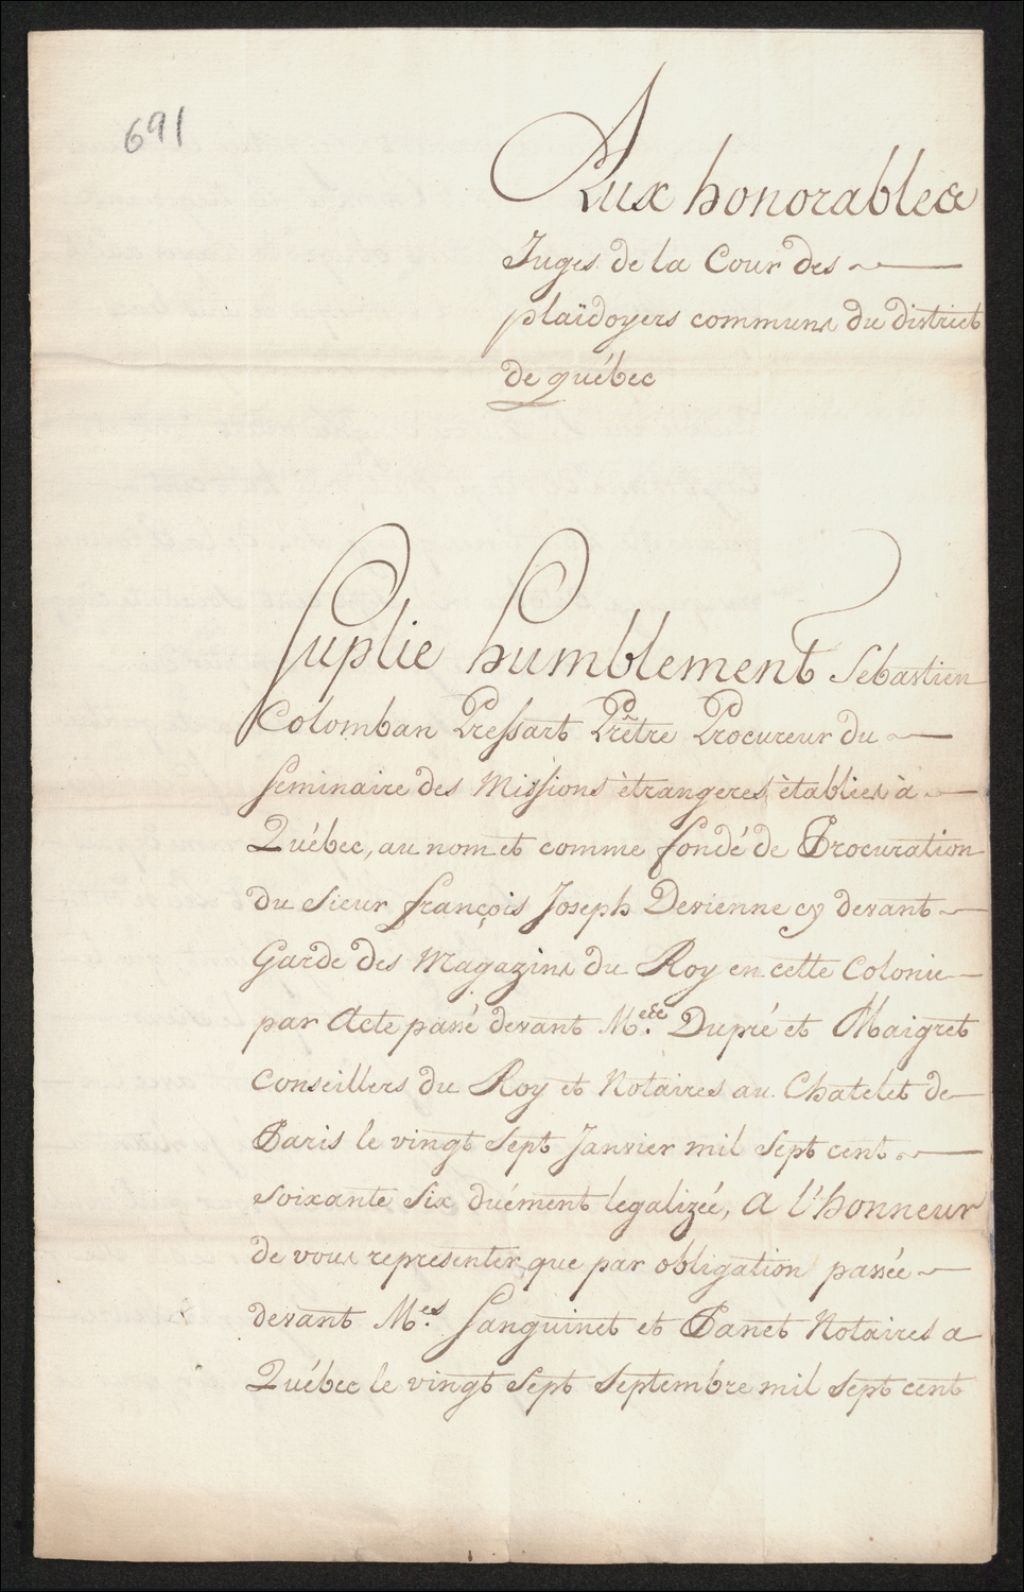 691
Aux honorables
Juges de la Cour des
plaïdoyers communs du district
de québec
Suplie humblement Sebastien
Colomban Pressart Prêtre Procureur du
Seminaire des Missions ètrangeres ètablies à
Québec, au nom et comme fondé de Procuration
du Sieur françois Joseph Devienne cy devant
Garde des Magazins du Roy en cette Colonie
par Acte passé devant M.es Dupré et Maigret
Conseillers du Roy et Notaires au Chatelet de
Paris le vingt Sept Janvier mil Sept cent
soixante Six duëment legalizée, A l'honneur
de vous representer que par obligation passée
devant M.es Sanguinet et Panet Notaires a
Québec le vingt Sept Septembre mil Sept cent